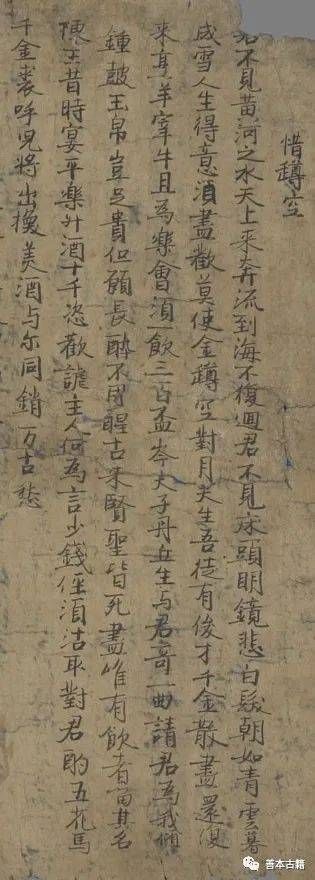 惜罇空
君不見黃河之水天上來奔流到海不復迴君不見床頭明鏡悲白髮朝如青雲暮
成雪人生得意須盡歡莫使金罇空對月天生吾徒有俊才千金散盡還復
來烹羊宰牛且為樂會須一飲三百盃岑夫子丹丘生与君哥一曲請君為我傾
鍾鼓玉帛豈足貴但願長醉不用醒古來賢聖皆死盡唯有飲者留其名
陳王昔時宴平樂斗酒十千恣歡謔主人何為言少錢徑須沽取對君酌五花馬
千金裘呼兒將出換美酒与尔同銷万古愁
善本古籍